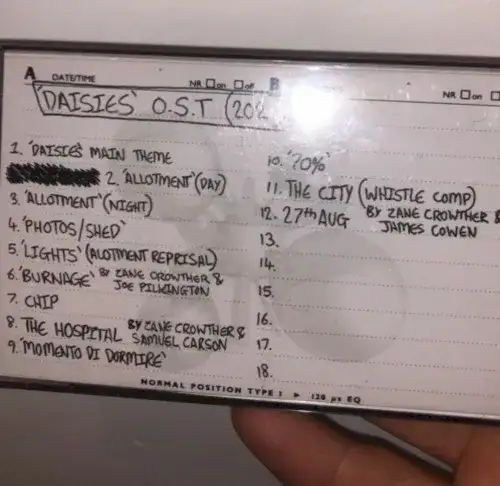 A DATE/TIME NR on off B NR on
'DAISIES' O.S.T (202
1. 'DAISIES' MAIN THEME
2. 'ALLOTMENT' (DAY)
3. 'ALLOTMENT' (NIGHT)
4. 'PHOTOS/SHED'
5. 'LIGHTS' (ALOTMENT REPRISAL)
6. 'BURNAGE' BY ZANE CROWTHER &
JOE PILKINGTON
7. CHIP
8. THE HOSPITAL BY ZANE CROWTHER &
SAMUEL CARSON
9. 'MOMENTO DI DORMIRE'
10. '70%'
11. THE CITY (WHISTLE COMP)
12. 27th AUG BY ZANE CROWTHER &
JAMES COWEN
13.
14.
15.
16.
17.
18.
NORMAL POSITION TYPE I ▶ 120 µs EQ